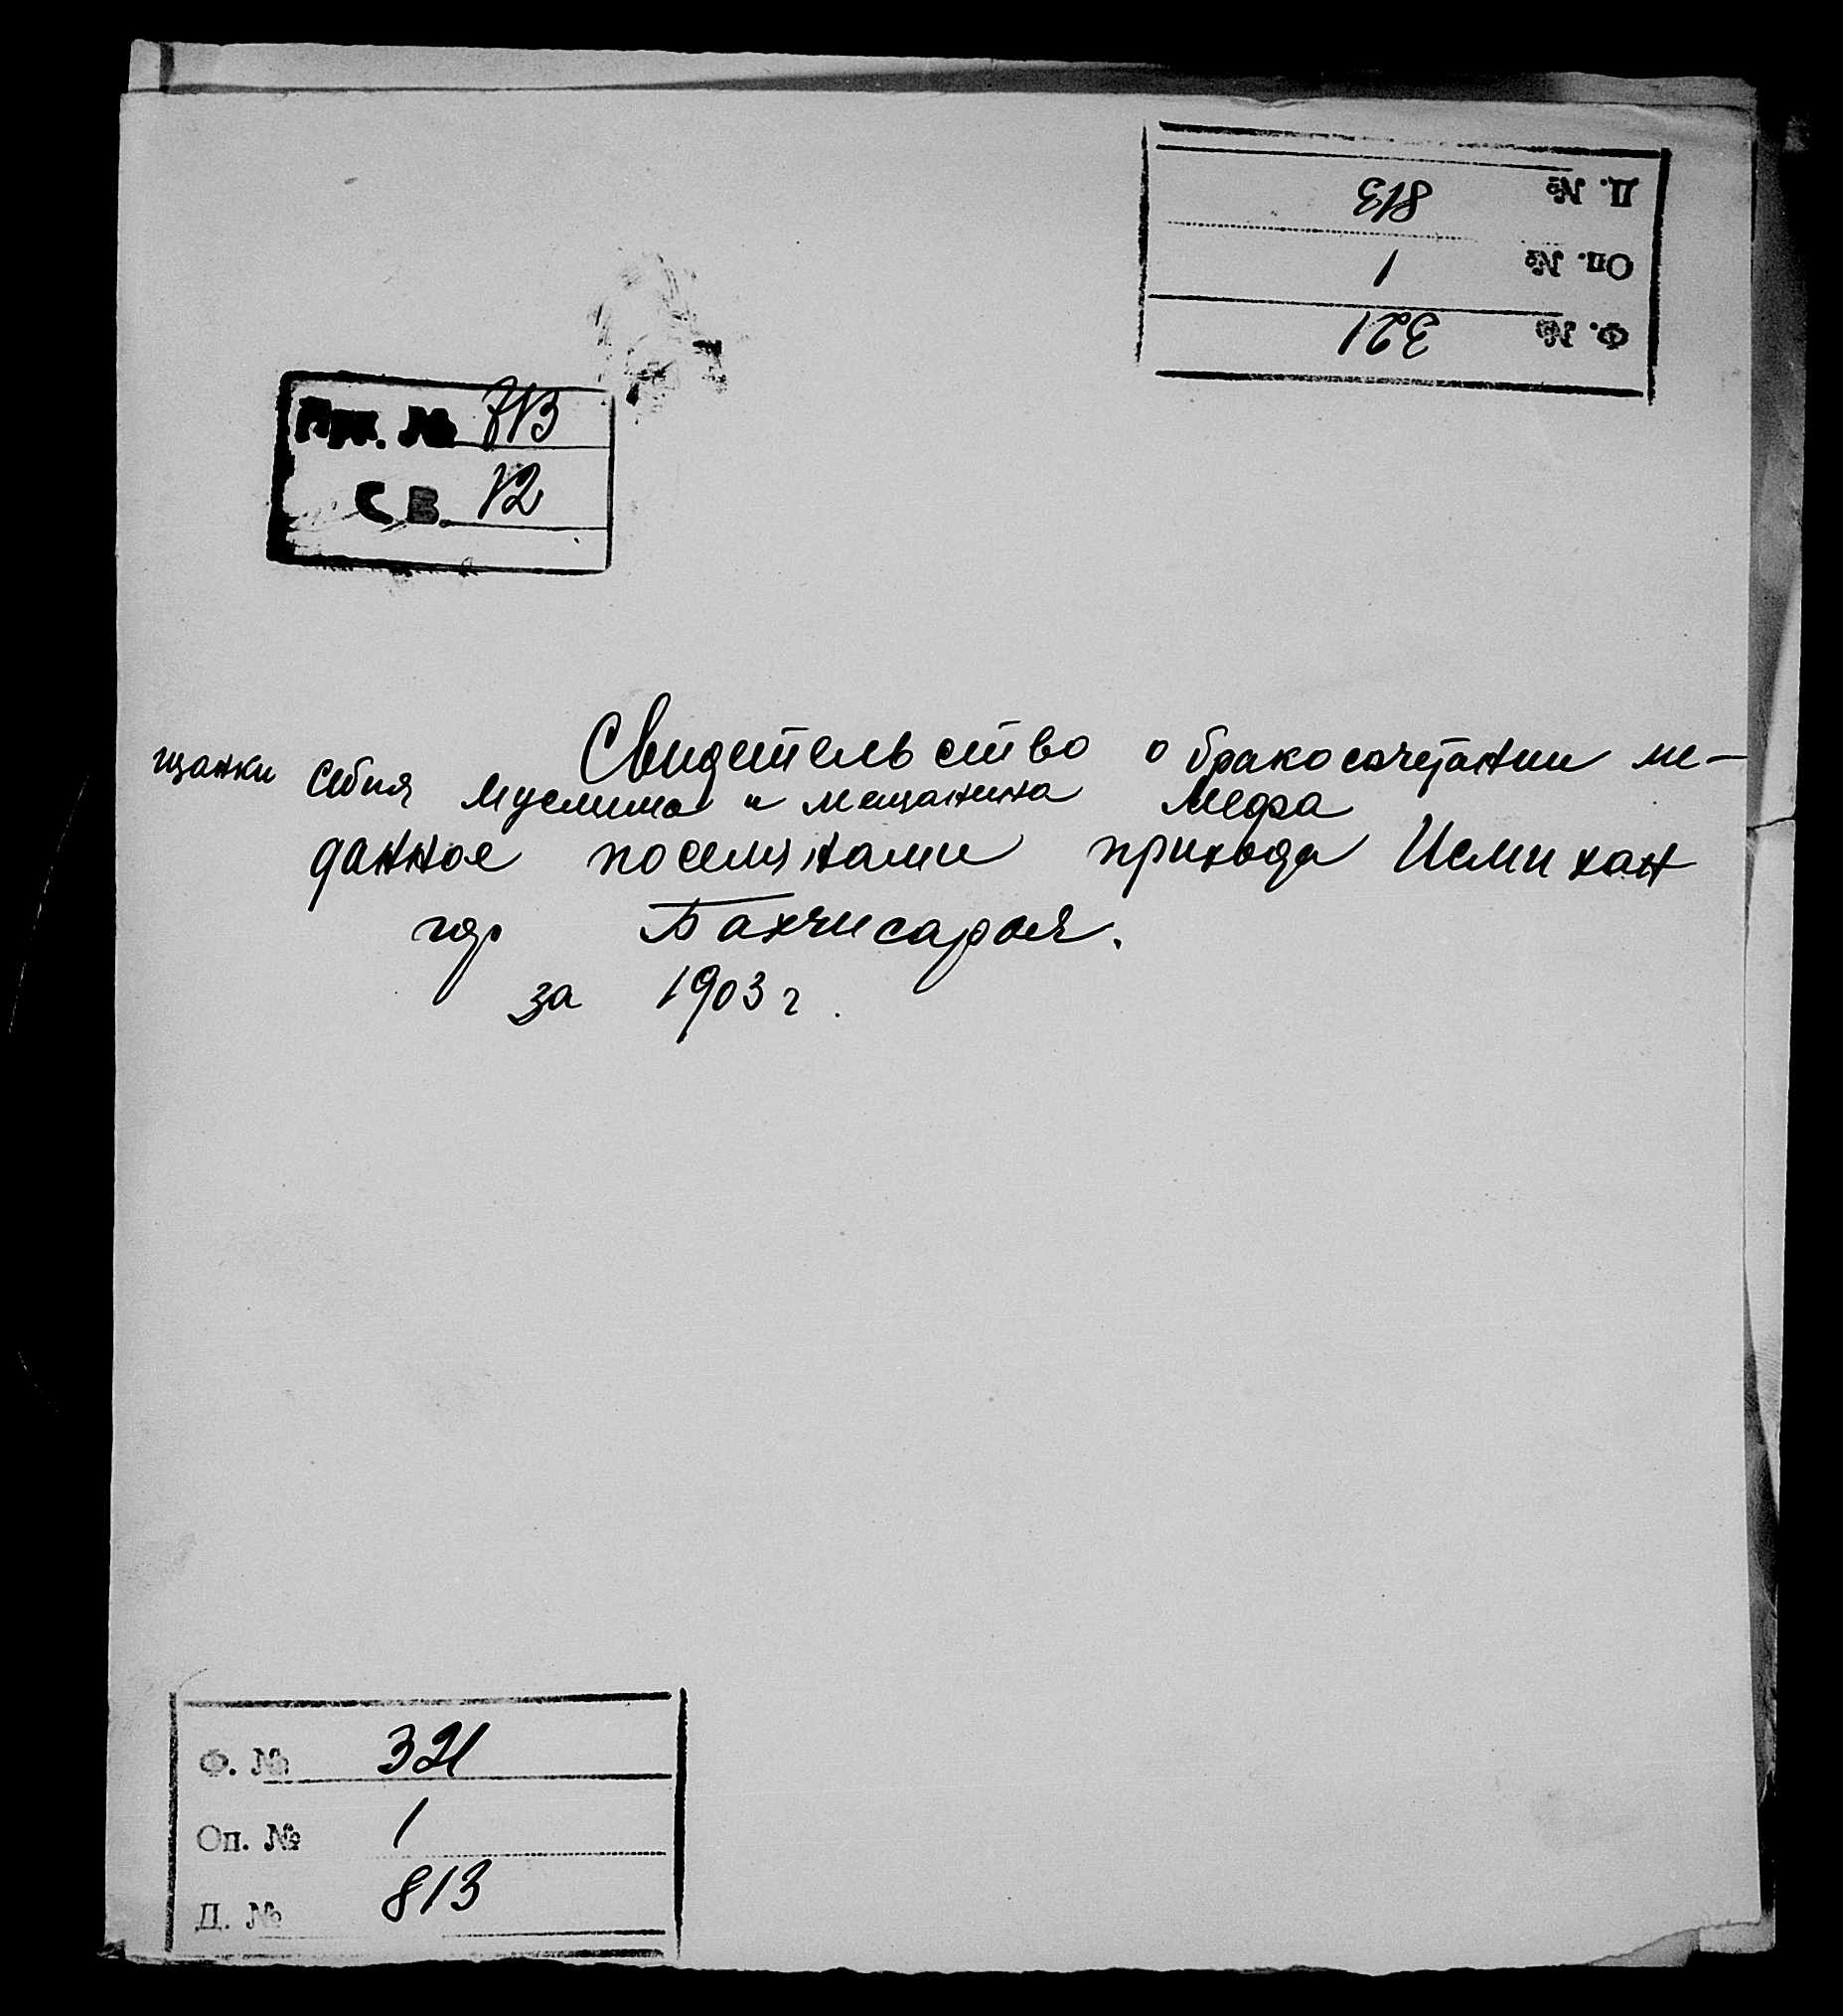 Д. № 813
Оп. № 1
Ф. № 321
Пик. № 713
СВ. 12
Свидетельство о бракосочетании ме-
щанки Себия Муслима и мещанина Мефа
данное поселянами прихода Исми хан
гор Бахчисарая.
за 1903 г.
Ф. № 321
Оп. № 1
Д. № 813